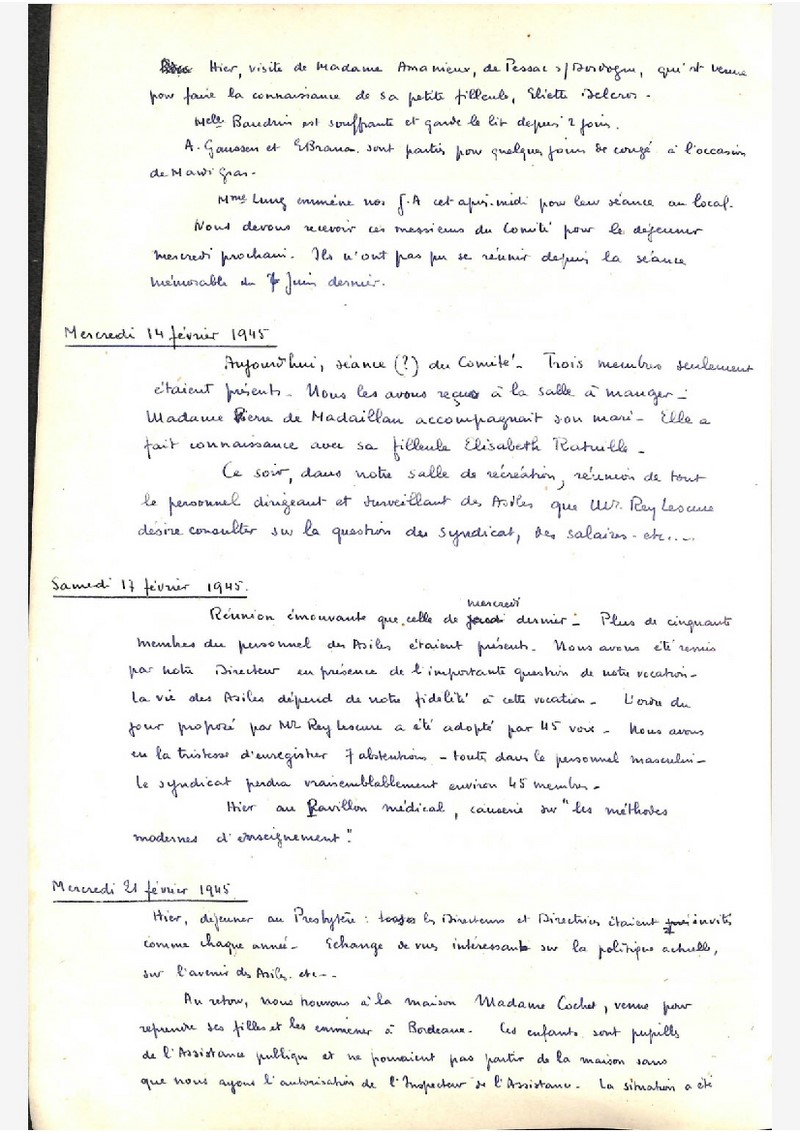 Hier, visite de Madame Amanieux, de Pessac s/Dordogne, qui est venue
pour faire la connaissance de sa petite filleule, Eliette Delcros.
Melle Baudrin est souffrante et garde le lit depuis 2 jours.
A. Gaussen et sont partis pour quelques jours de congé à l'occasion
de Mardi Gras.
Mme Lung emmène nos J.A cet après-midi pour leur séance au local.
Nous devons recevoir ces messieurs du Comité pour le déjeuner
mercredi prochain. Ils n'ont pas pu se réunir depuis la séance
mémorable du 7 Juin dernier.
Mercredi 14 février 1945
Aujourd'hui, séance (?) du Comité. Trois membres seulement
étaient présents. Nous les avons reçus à la salle à manger.
Madame Pierre de Madaillan accompagnait son mari. Elle a
fait connaissance avec sa filleule Elisabeth
Ce soir, dans notre salle de récréation, réunion de tout
le personnel dirigeant et surveillant des Asiles que Mr. Rey Lescure
désire consulter sur la question du syndicat, des salaires. etc....
Samedi 17 février 1945.
Réunion émouvante que celle de mercredi dernier. Plus de cinquante
membres du personnel des Asiles étaient présents. Nous avons été remis
par notre Directeur en présence de l'importante question de notre vocation.
La vie des Asiles dépend de notre fidélité à cette vocation. L'ordre du
jour proposé par Mr Rey Lescure a été adopté par 45 voix. Nous avons
eu la tristesse d'enregistrer 7 abstentions - toutes dans le personnel masculin.
Le syndicat perdra vraisemblablement environ 45 membres.
Hier au Pavillon médical, causerie sur "les méthodes
modernes d'enseignement".
Mercredi 21 février 1945
Hier, déjeuner au Presbytère : les Directeurs et Directrices étaient invités
comme chaque année. Echange de vues intéressant sur la politique actuelle,
sur l'avenir des Asiles. etc...
Au retour, nous trouvons à la maison Madame Cochet, venue pour
reprendre ses filles et les emmener à Bordeaux. Ces enfants sont pupilles
de l'Assistance publique et ne pouvaient pas partir de la maison sans
que nous ayons l'autorisation de l'Inspecteur de l'Assistance. La situation a été